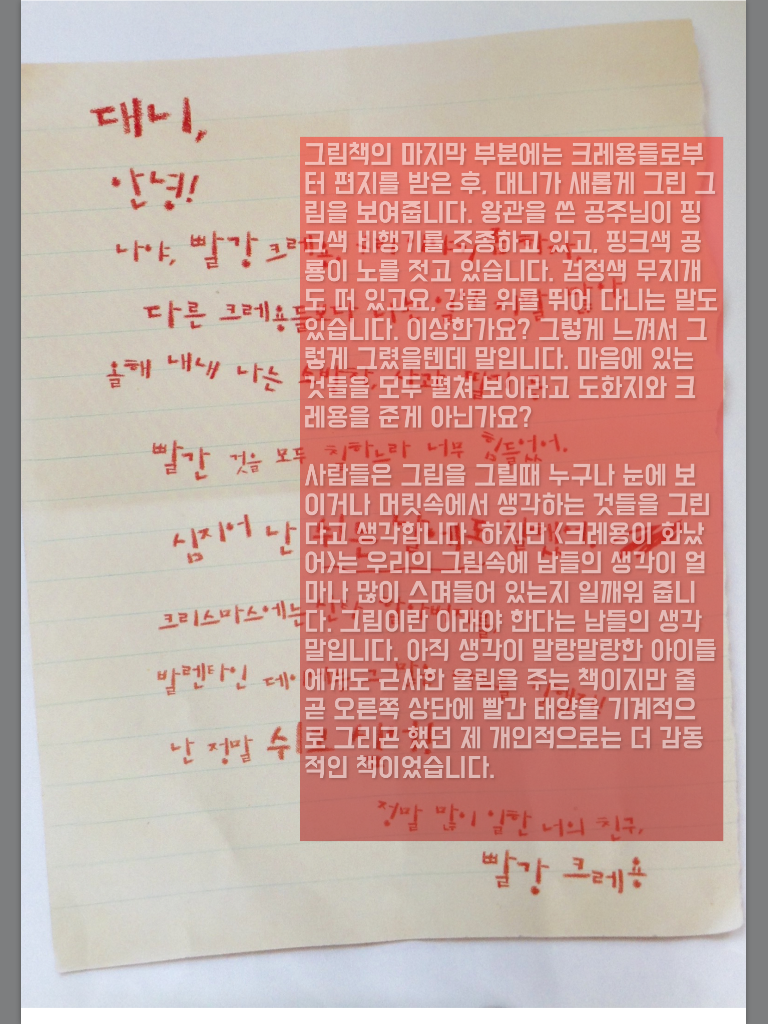 대니,
안녕!
나야, 빨강 크레용.
다른 크레용들보다
올해 내내 나는 소방차, 사과, 딸기랑
빨간 것을 모두 칠하느라 너무 힘들었어.
심지어 난
크리스마스에는 산타 할아버지를,
발렌타인 데이
난 정말
정말 많이 일한 너의 친구,
빨강 크레용
그림책의 마지막 부분에는 크레용들로부
터 편지를 받은 후, 대니가 새롭게 그린 그
림을 보여줍니다. 왕관을 쓴 공주님이 핑
크색 비행기를 조종하고 있고, 핑크색 공
룡이 노를 젓고 있습니다. 검정색 무지개
도 떠 있고요, 강물 위를 뛰어 다니는 말도
있습니다. 이상한가요? 그렇게 느껴서 그
렇게 그렸을텐데 말입니다. 마음에 있는
것들을 모두 펼쳐 보이라고 도화지와 크
레용을 준게 아닌가요?
사람들은 그림을 그릴때 누구나 눈에 보
이거나 머릿속에서 생각하는 것들을 그린
다고 생각합니다. 하지만 <크레용이 화났
어>는 우리의 그림속에 남들의 생각이 얼
마나 많이 스며들어 있는지 일깨워 줍니
다. 그림이란 이래야 한다는 남들의 생각
말입니다. 아직 생각이 말랑말랑한 아이들
에게도 근사한 울림을 주는 책이지만 줄
곧 오른쪽 상단에 빨간 태양을 기계적으
로 그리곤 했던 제 개인적으로는 더 감동
적인 책이었습니다.